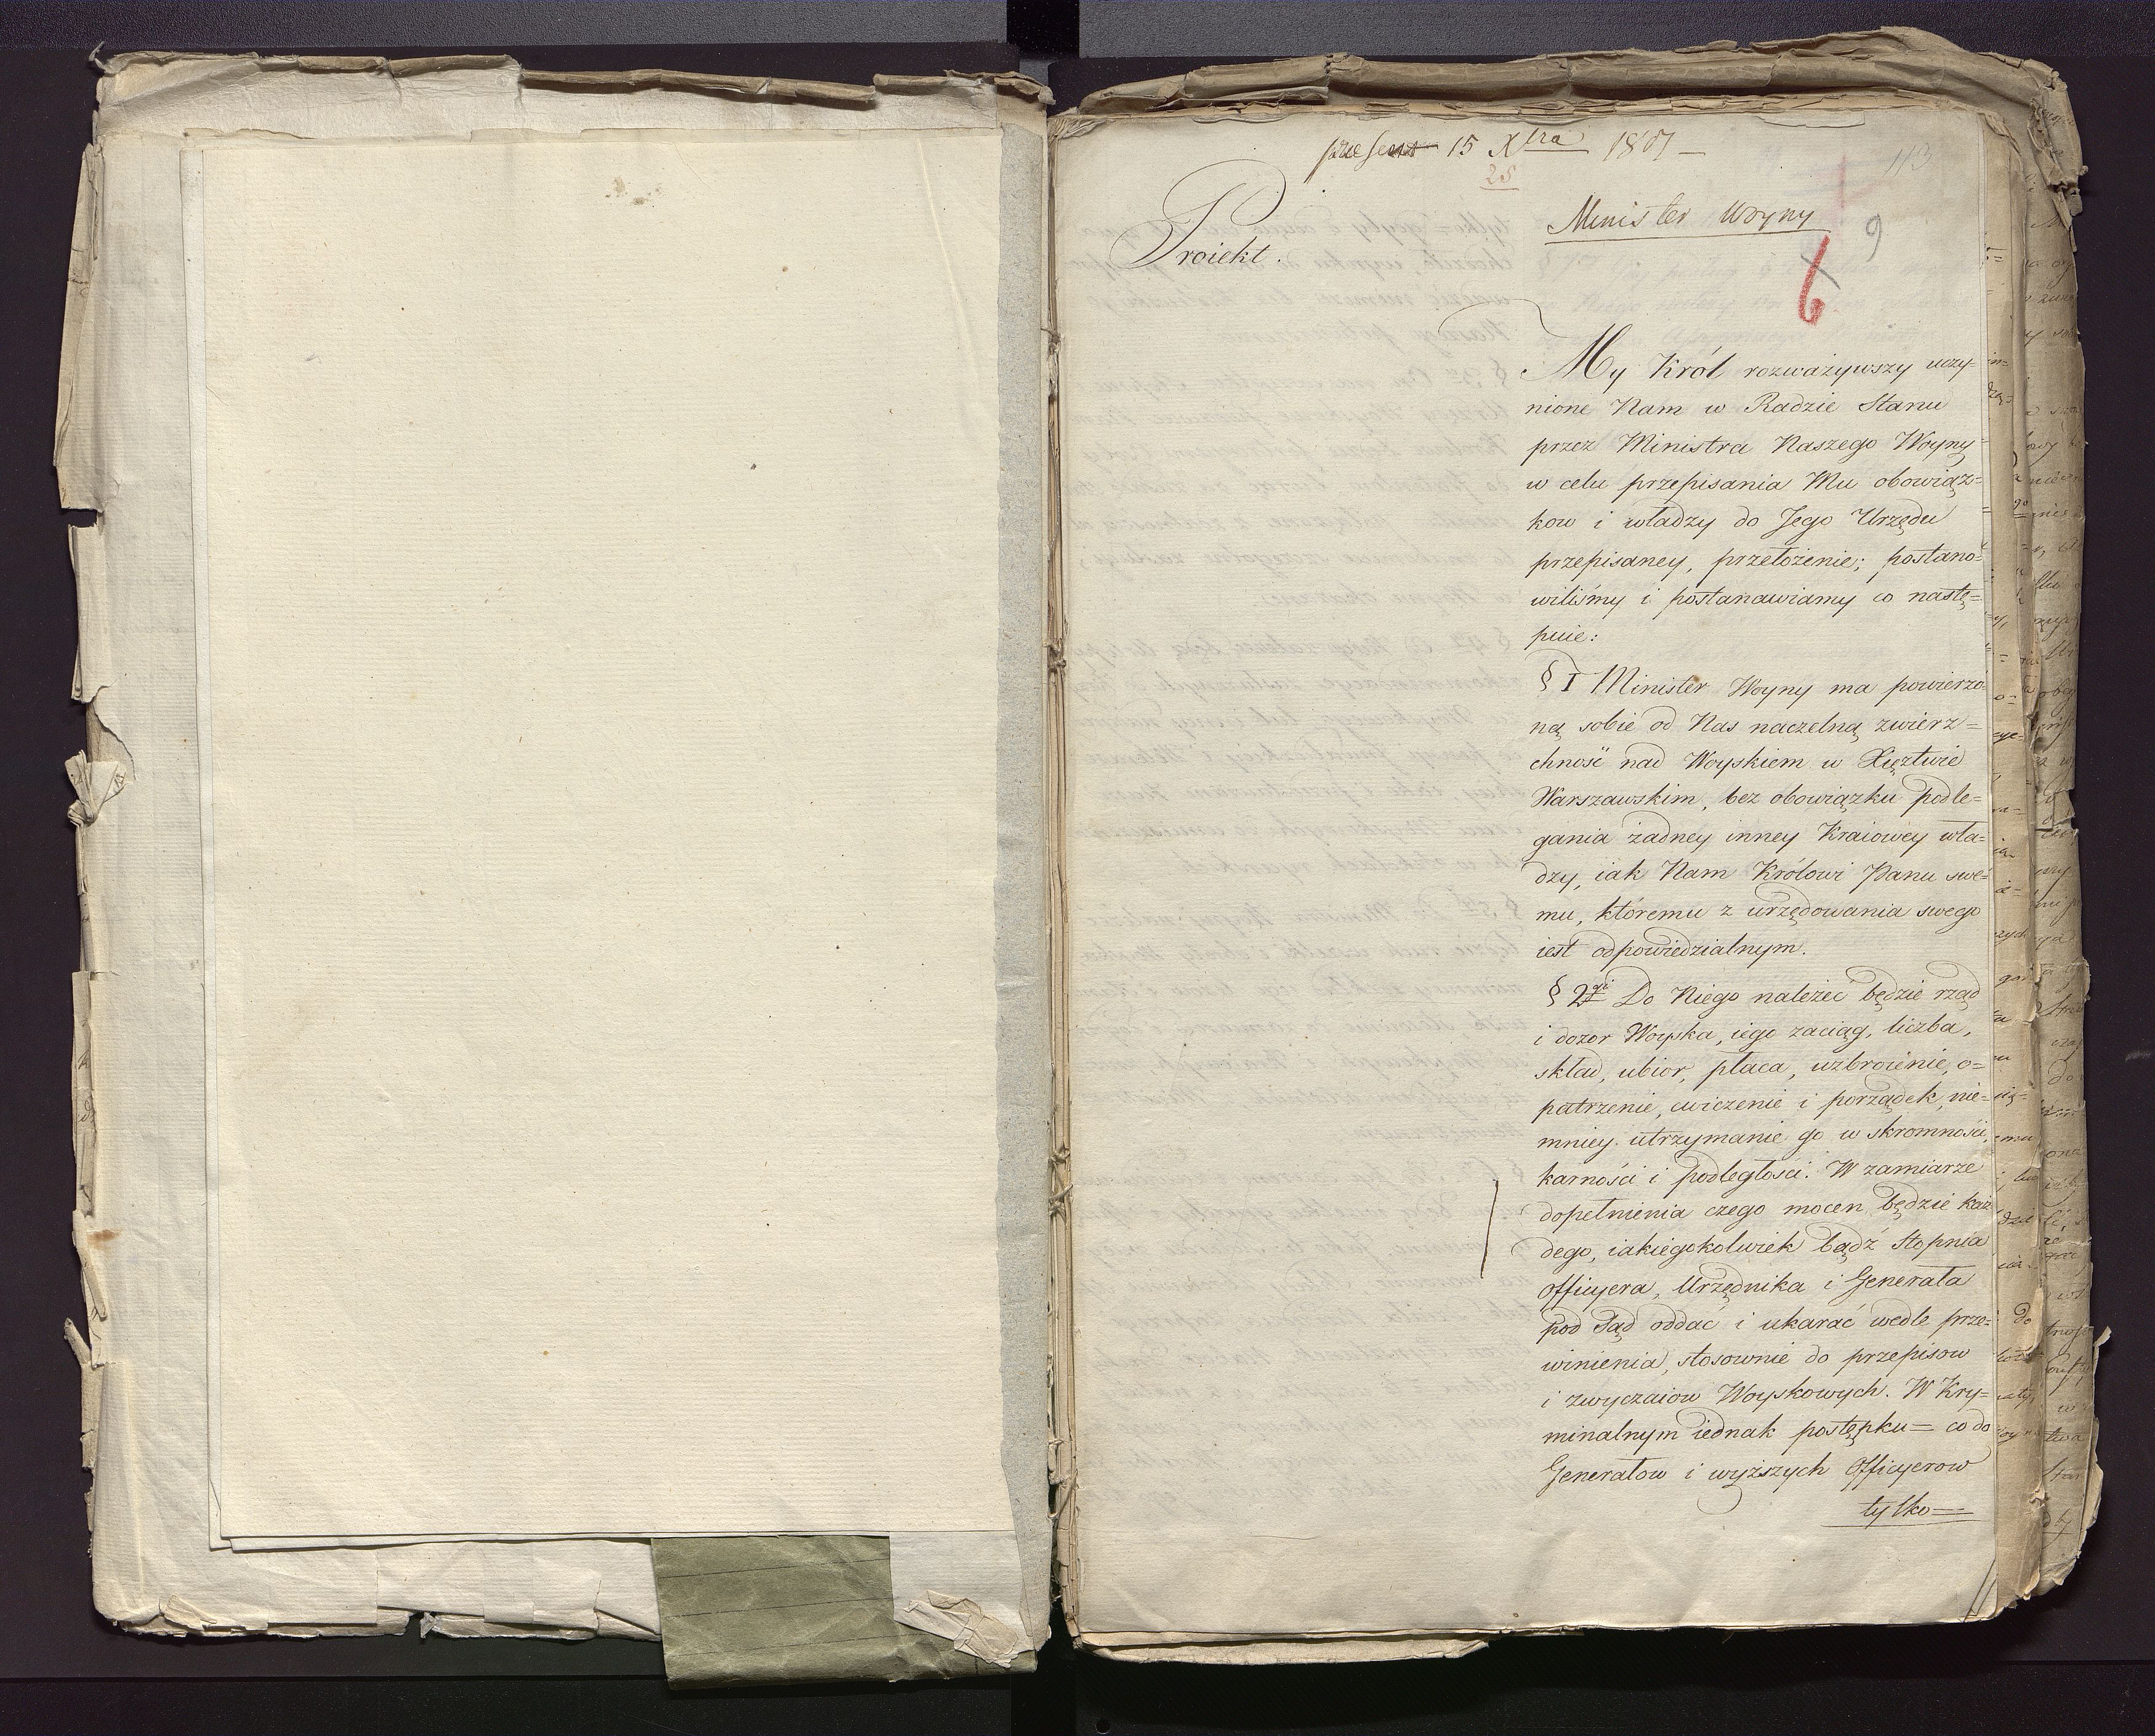 præsens 15 Xbra 1807
25
113
Minister Woyny
9
6
Proiekt.
My Król rozważywszy uczy-
nione Nam w Radzie Stanu
przez Ministra Naszego Woyny
w celu przepisania Mu obowiąz=
kow i władzy do Jego Urzędu
przepisaney, przełożenie; postano=
wiliśmy i postanawiamy co nastę=
puie:
§ 1 Minister Woyny ma powierzo-
ną sobie od Nas naczelną zwierz=
chność nad Woyskiem w Xięztwie
Warszawskim, bez obowiązku podle=
gania żadney inney Kraiowey wła=
dzy, iak Nam Królowi Panu swe=
mu, któremu z urzędowania swego
iest odpowiedzialnym.
§ 2gi Do Niego należeć będzie rząd
i dozor Woyska, iego zaciąg, liczba,
skład, ubior, płaca, uzbroienie, o=
patrzenie, cwiczenie i porządek, nie=
mniey utrzymanie go w skromności,
karności i podległości. W zamiarze
dopełnienia czego mocen będzie każ
dego, iakiegokolwiek bądź Stopnia
Officyera, Urzędnika i Generała
pod Sąd oddać i ukarać wedle prze=
winienia, stosownie do przepisow
i zwyczaiow Woyskowych. W Kry=
minalnym iednak postępku= co do
Generałow i wyższych Officyerow
tylko=